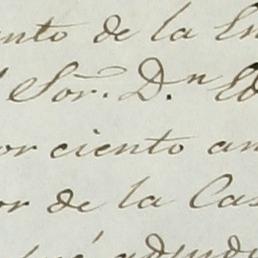 nto de la En
Sor. D.n Ed
or ciento an
or de la Cas